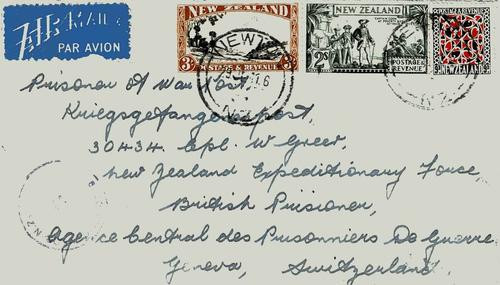 AIR MAIL
PAR AVION
NEW ZEALAND
3/-
POSTAGE & REVENUE
NEW ZEALAND
2S
POSTAGE & REVENUE
POSTAGE & REVENUE
NEW ZEALAND
N.Z.
Prisoner of War Post.
Kriegsgefangenenpost,
30434. Cpl. W Greer,
New Zealand Expeditionary Force
British Prisioner,
Agence Central des Prisonniers De Guerre
Geneva, Switzerland.